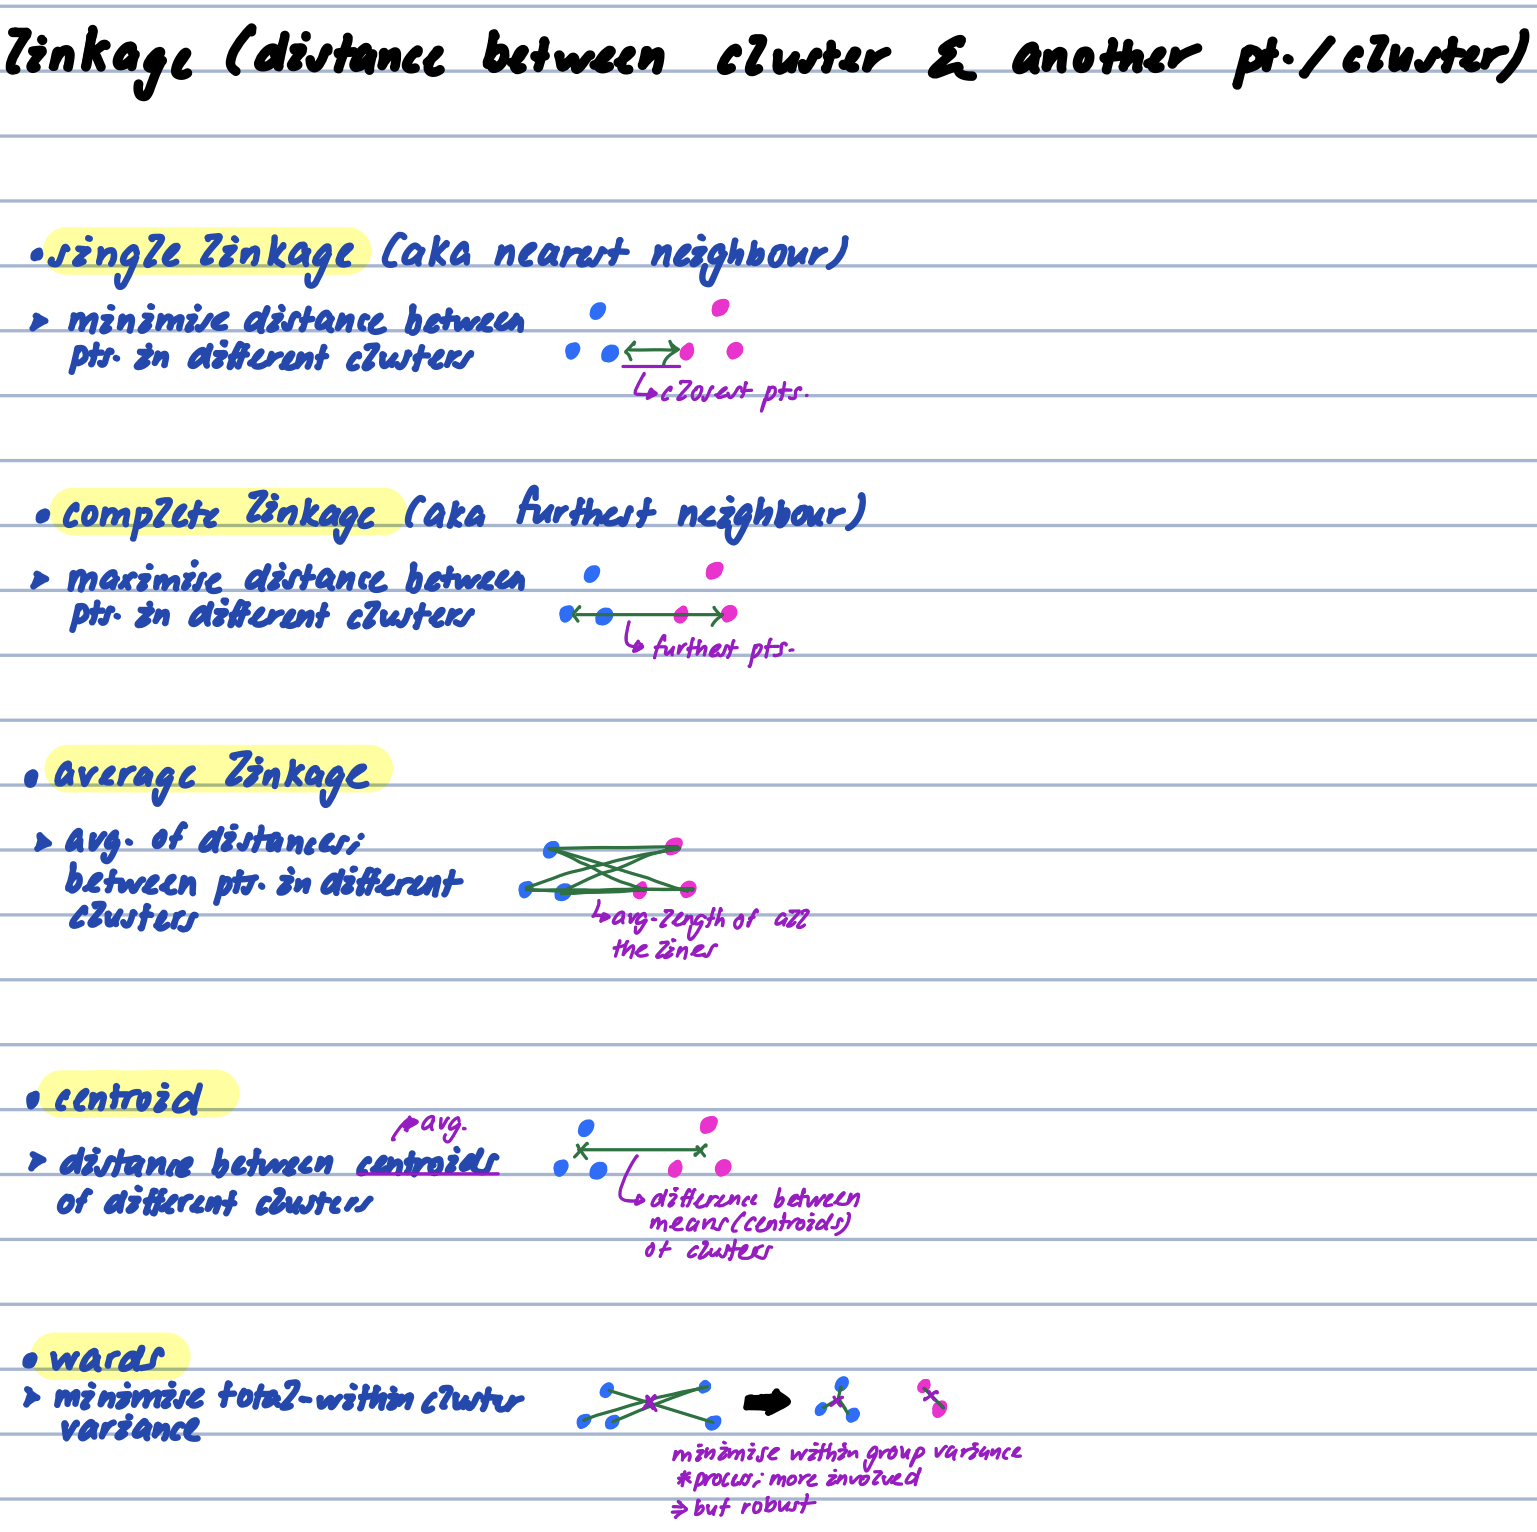 linkage (distance between cluster & another pt./cluster)
• single linkage (aka nearest neighbour)
➤ minimise distance between
pts. in different clusters
↳ closest pts.
• complete linkage (aka furthest neighbour)
➤ maximise distance between
pts. in different clusters
↳ furthest pts.
• average linkage
➤ avg. of distances
between pts. in different
clusters
↳ avg. length of all
the lines
• centroid
avg.
➤ distance between centroids
of different clusters
↳ difference between
means (centroids)
of clusters
• wards
➤ minimise total-within cluster
variance
minimise within group variance
* process more involved
⇒ but robust